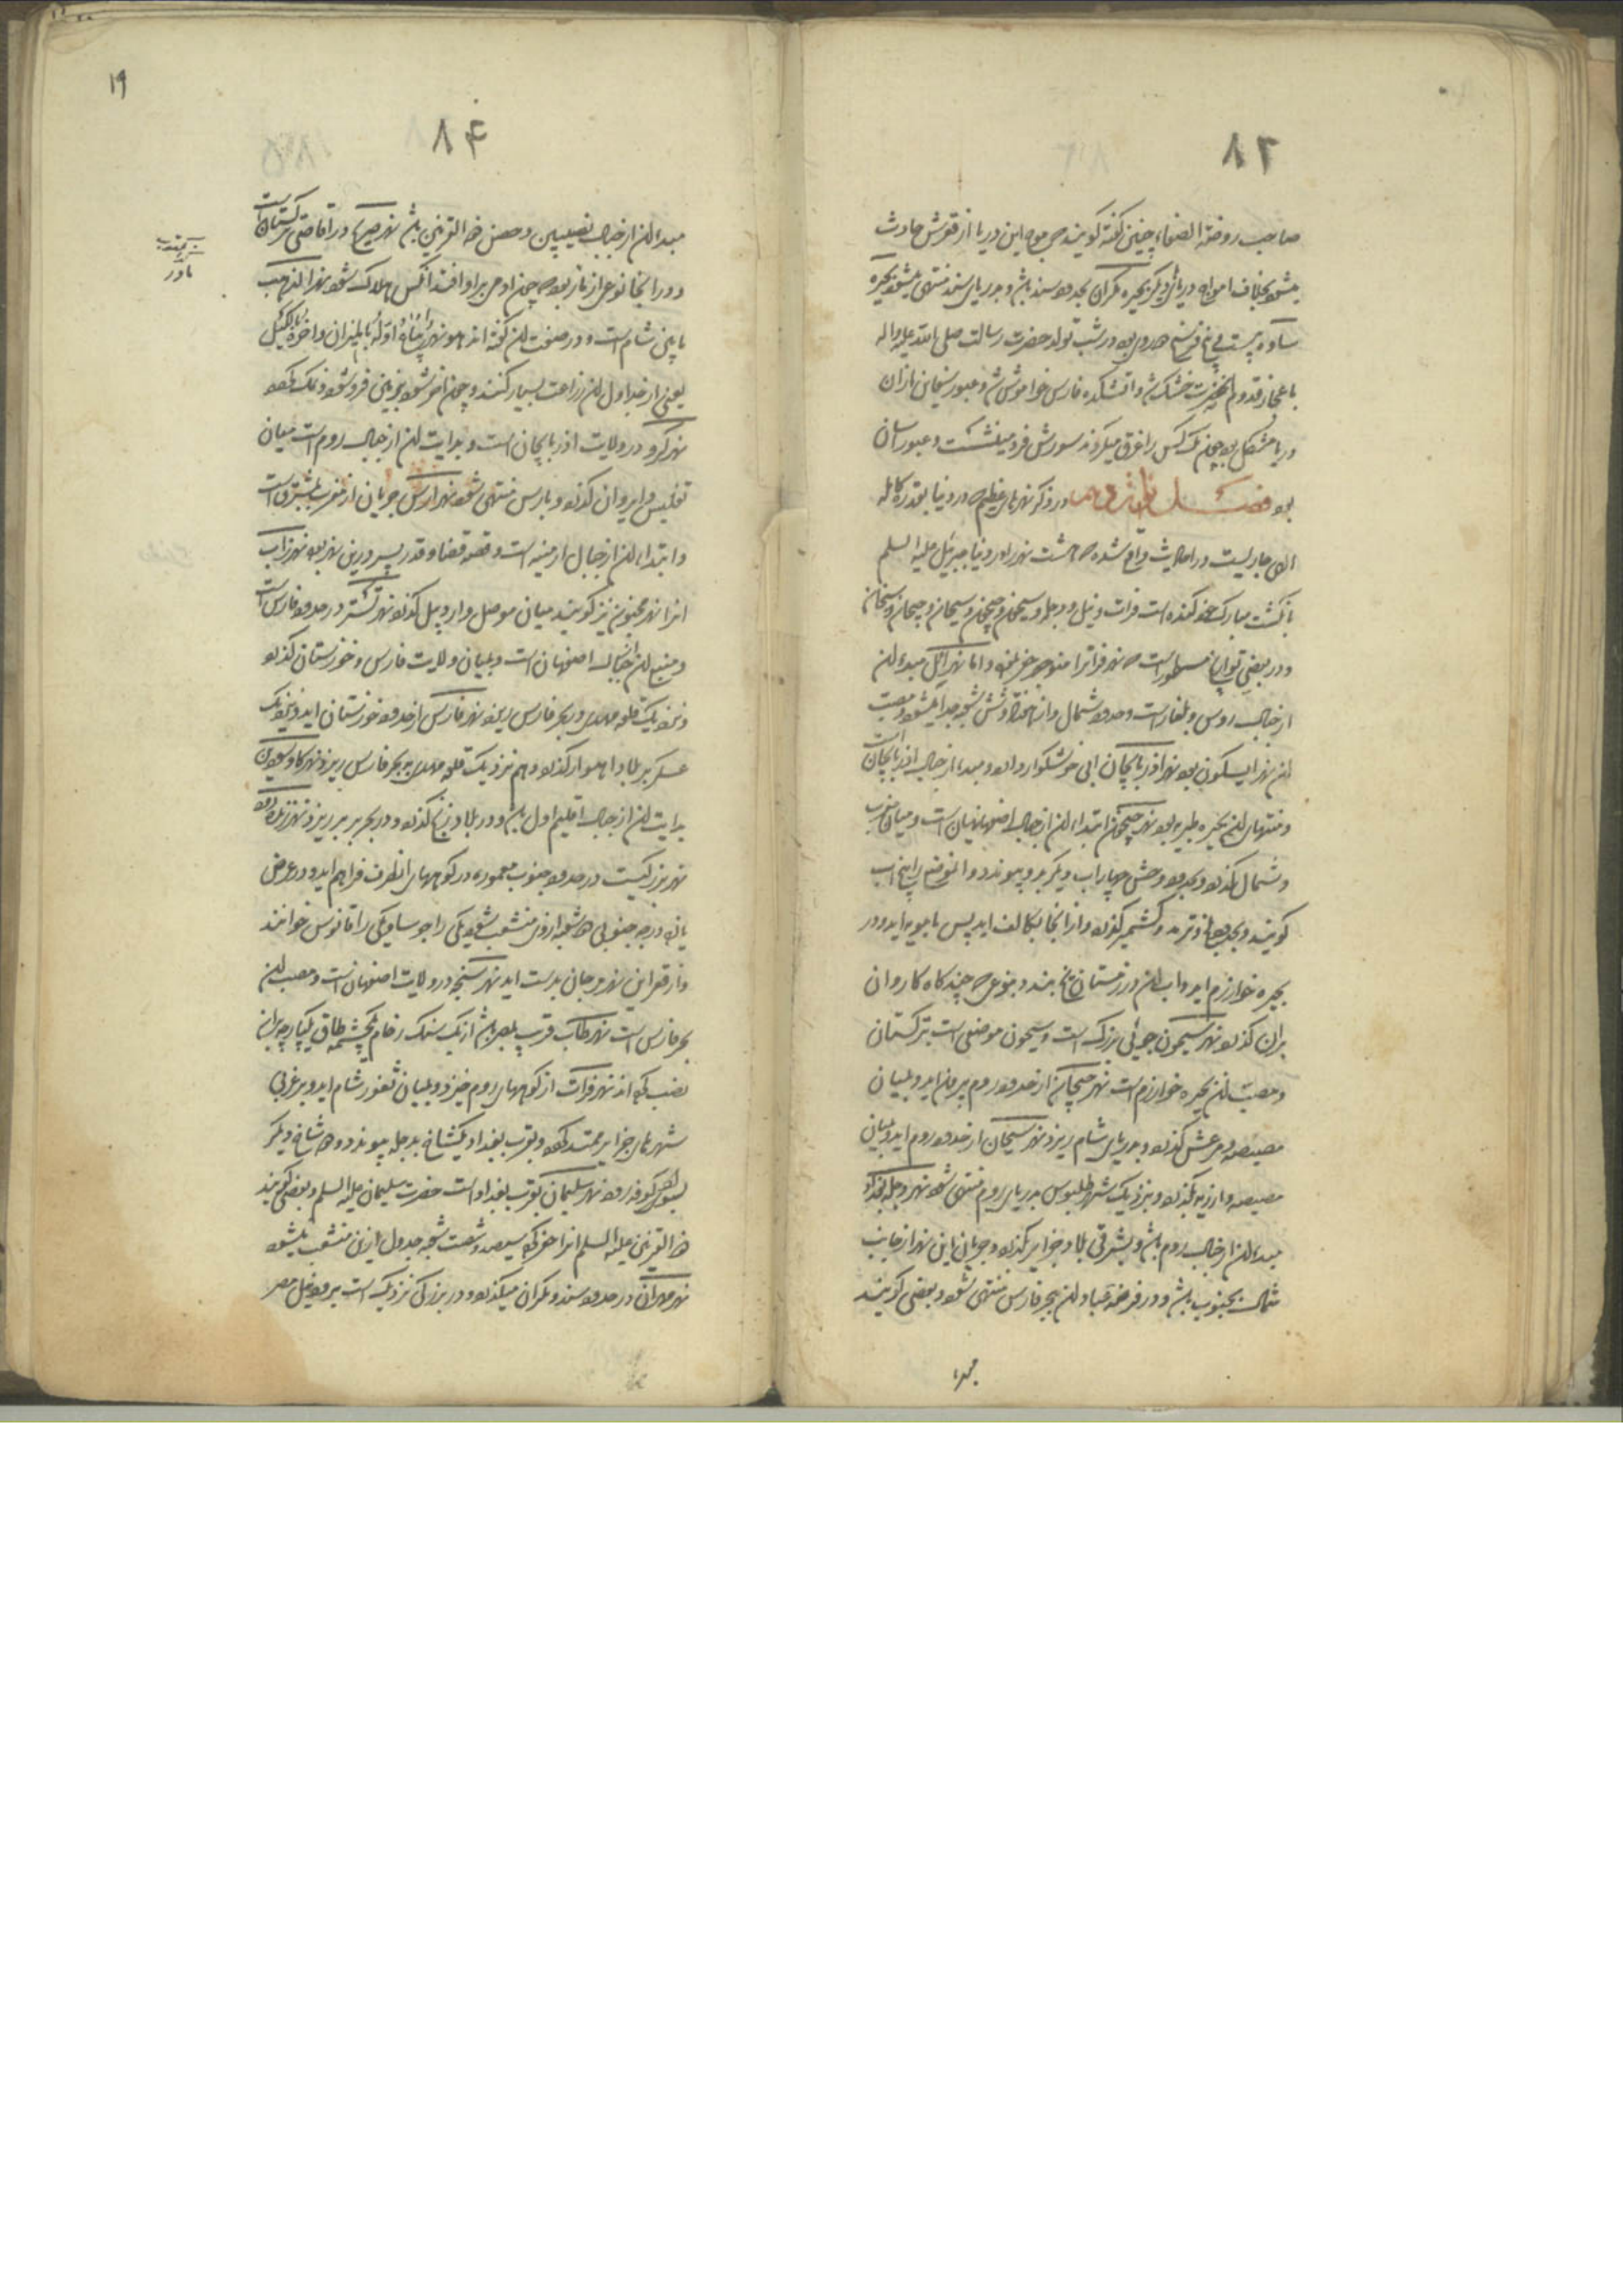 ۸۲
صاحب روضة الصفاء چنین گفته گویند موج این دریا از قعرش حادث
میشود بخلاف امواج دریای دیگر بحیره مکران بحدود سند باشد و بدریای سند منتهی میشود بحیره
ساوه بیست و پنج فرسخ بود در شب تولد حضرت رسالت صلی الله علیه و اله
باعجاز قدوم انحضرت خشک شد و اتشکده فارس خواموش شد و عبور سفاین ازان
دریا مشکل بود چون یک کس را غرق میکردند سورش فرو مینشست و عبور اسان
بود فصل در ذکر نهرهای عظیم که در دنیا بقدرة کامله
الهی جاریست در احادیث واقع شده که هشت نهر را در دنیا جبرئیل علیه السلم
بانگشت مبارک خود کنده است فرات و نیل و دجله و سیحون و جیحون و سیحان و جیحان
و در بعضی تواریخ مسطور است که نهر فرات را منوچهر حفر نمود و اما نهر اتل مبداء ان
از جبال روس و بلغار است و حدود شمال و ازان هفتاد و شش شعبه جدا میشود و مصب
ان نهر ابسکون بود نهر اذربایجان ابی خوشگوار دارد و مبداء از جبال اذربایجان است
و منتهای ان بحیره طبریه بود نهر جیحون ابتداء ان از جبال است و میان مغرب
و شمال بگذرد و بحدود وخش چهار اب دیگر بدو پیوندد و ان موضع را پنج اب
گویند و بحدود بلخ و ترمد و گذرد و از انجا بکالف اید پس بامویه اید و در
بحیره خوارزم اید و اب ان در زمستان یخ بندد بنوعی که چندگاه کاروان
بران گذرد نهر سیحون جوئی بزرگ است و سیحون موضعی است بترکستان
و مصب ان بحیره خوارزم است نهر جیحان از حدود روم بیرون اید و بمیان
مصیصه و مرعش گذرد و بدریای شام ریزد نهر سیحان از حدود روم اید و میان
مصیصه و ارزیه بگذرد و بنزدیک شهر طلبوس بدریای روم منتهی شود نهر دجله بغداد
مبداء ان از جبال روم باشد و بشرقی بلاد جزایر بگذرد و جریان این نهر از جانب
شمال بجنوب باشد و در فرضه عباد ان ببحر فارس منتهی شود و بعضی گویند
مبداء
۱۹
۸۴
مبداء ان از جبال نصیبین و حصن ذو القرنین باشد نهر در اقاصی ترکستان است
و در انجا نوعی از مار بود که چون ادمی بر او افتد انکس هلاک شود نهر الذهب
بایمن شام است و در صفت ان گفته اند هو نهر اوله بالمیزان و اخره بالکیل
یعنی از جداول ان زراعت بسیار کنند و چون اخر شود بزمین فرو شود و نمک گردد
نهر کر در ولایت اذربایجان است و بدایت ان از جبال روم است میان
تفلیس و ایروان گذرد و بارس منتهی شود نهر ارس جریان از مغرب بمشرق است
و ابتداء ان از جبال ارمنیه است و قصه قضا و قدر پسر درین نهر بود نهر زاب
انرا نهر مجنون نیز گویند میان موصل و اردبیل گذرد نهر تستر در حدود فارس است
و منبع ان جبال اصفهان است و بمیان ولایت فارس و خوزستان گذرد
و بنزدیک قلعه مهدی ببحر فارس ریزد نهر فارس از حدود خوزستان اید و بنزدیک
عسکر بلاد اهواز گذرد و هم نزدیک قلعه مهدی ببحر فارس ریزد نهر
بدایت ان از جبال اقلیم اول باشد و در بلاد زنج گذرد و در بحر بربر ریزد نهر
نهر بزرگیست در حدود جنوب معموره در کوههای انطرف فراهم اید و در عرض
پانزده درجه جنوبی دو شعبه ازوی منشعب شود یکی را جوساو یکی را قانوس خوانند
و از قعر این نهر مرجان بدست اید نهر سنجه در ولایت اصفهان است و مصب ان
بحر فارس است نهر طاب قرب بصره باشد از یک سنگ رخام یکچشمه طاق یکپارچه بران
نصب کرده اند نهر فرات از کوههای روم خیزد و بمیان ثغور شام اید و بر غربی
شهرهای جزایر ممتد گردد و بقرب بغداد یکشاخ بدجله پیوندد و دو شاخ دیگر
بسواد کوفه رود نهر سلیمان بقرب بغداد است حضرت سلیمان علیه السلم و بعضی گویند
ذو القرنین علیه السلم انرا حفر کرده سیصد و شصت شعبه جدول ازین منشعب میشود
نهر مهران در حدود سند و مکران میگذرد و در بزرگی نزدیک است برود نیل مصر
نادر